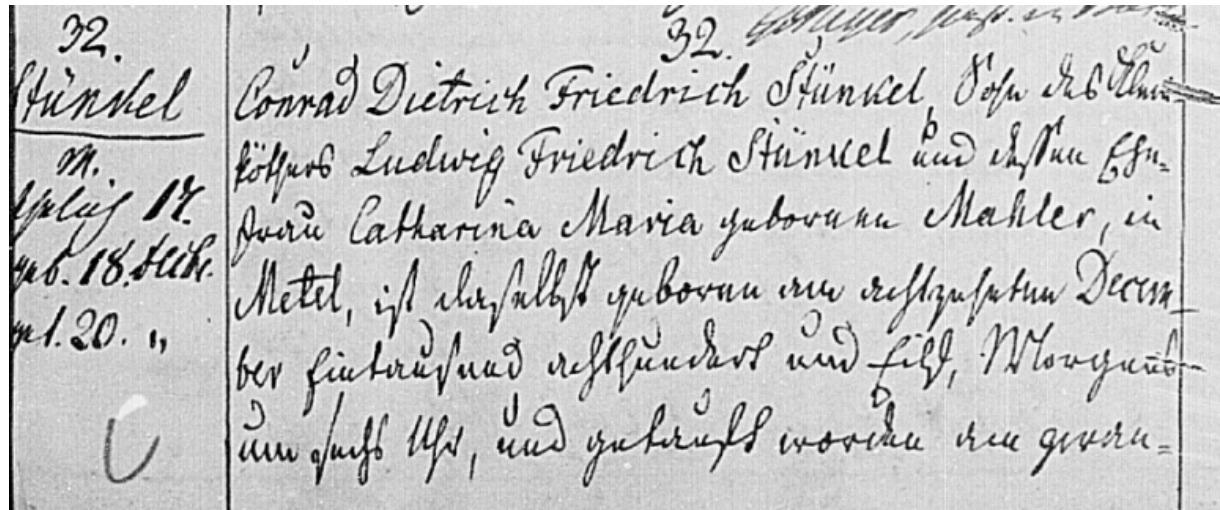 32.
Stünkel
M.
ehelich 17.
geb. 18. Decbr.
get. 20. "
32.
Conrad Dietrich Friedrich Stünkel, Sohn des Klein-
köthers Ludwig Friedrich Stünkel und dessen Ehe-
frau Catharina Maria gebornen Mahler, in
Metel, ist daselbst geboren am achtzehnten Decem-
ber Eintausend achthundert und Eilf, Morgens
um sechs Uhr, und getauft worden am zwan-